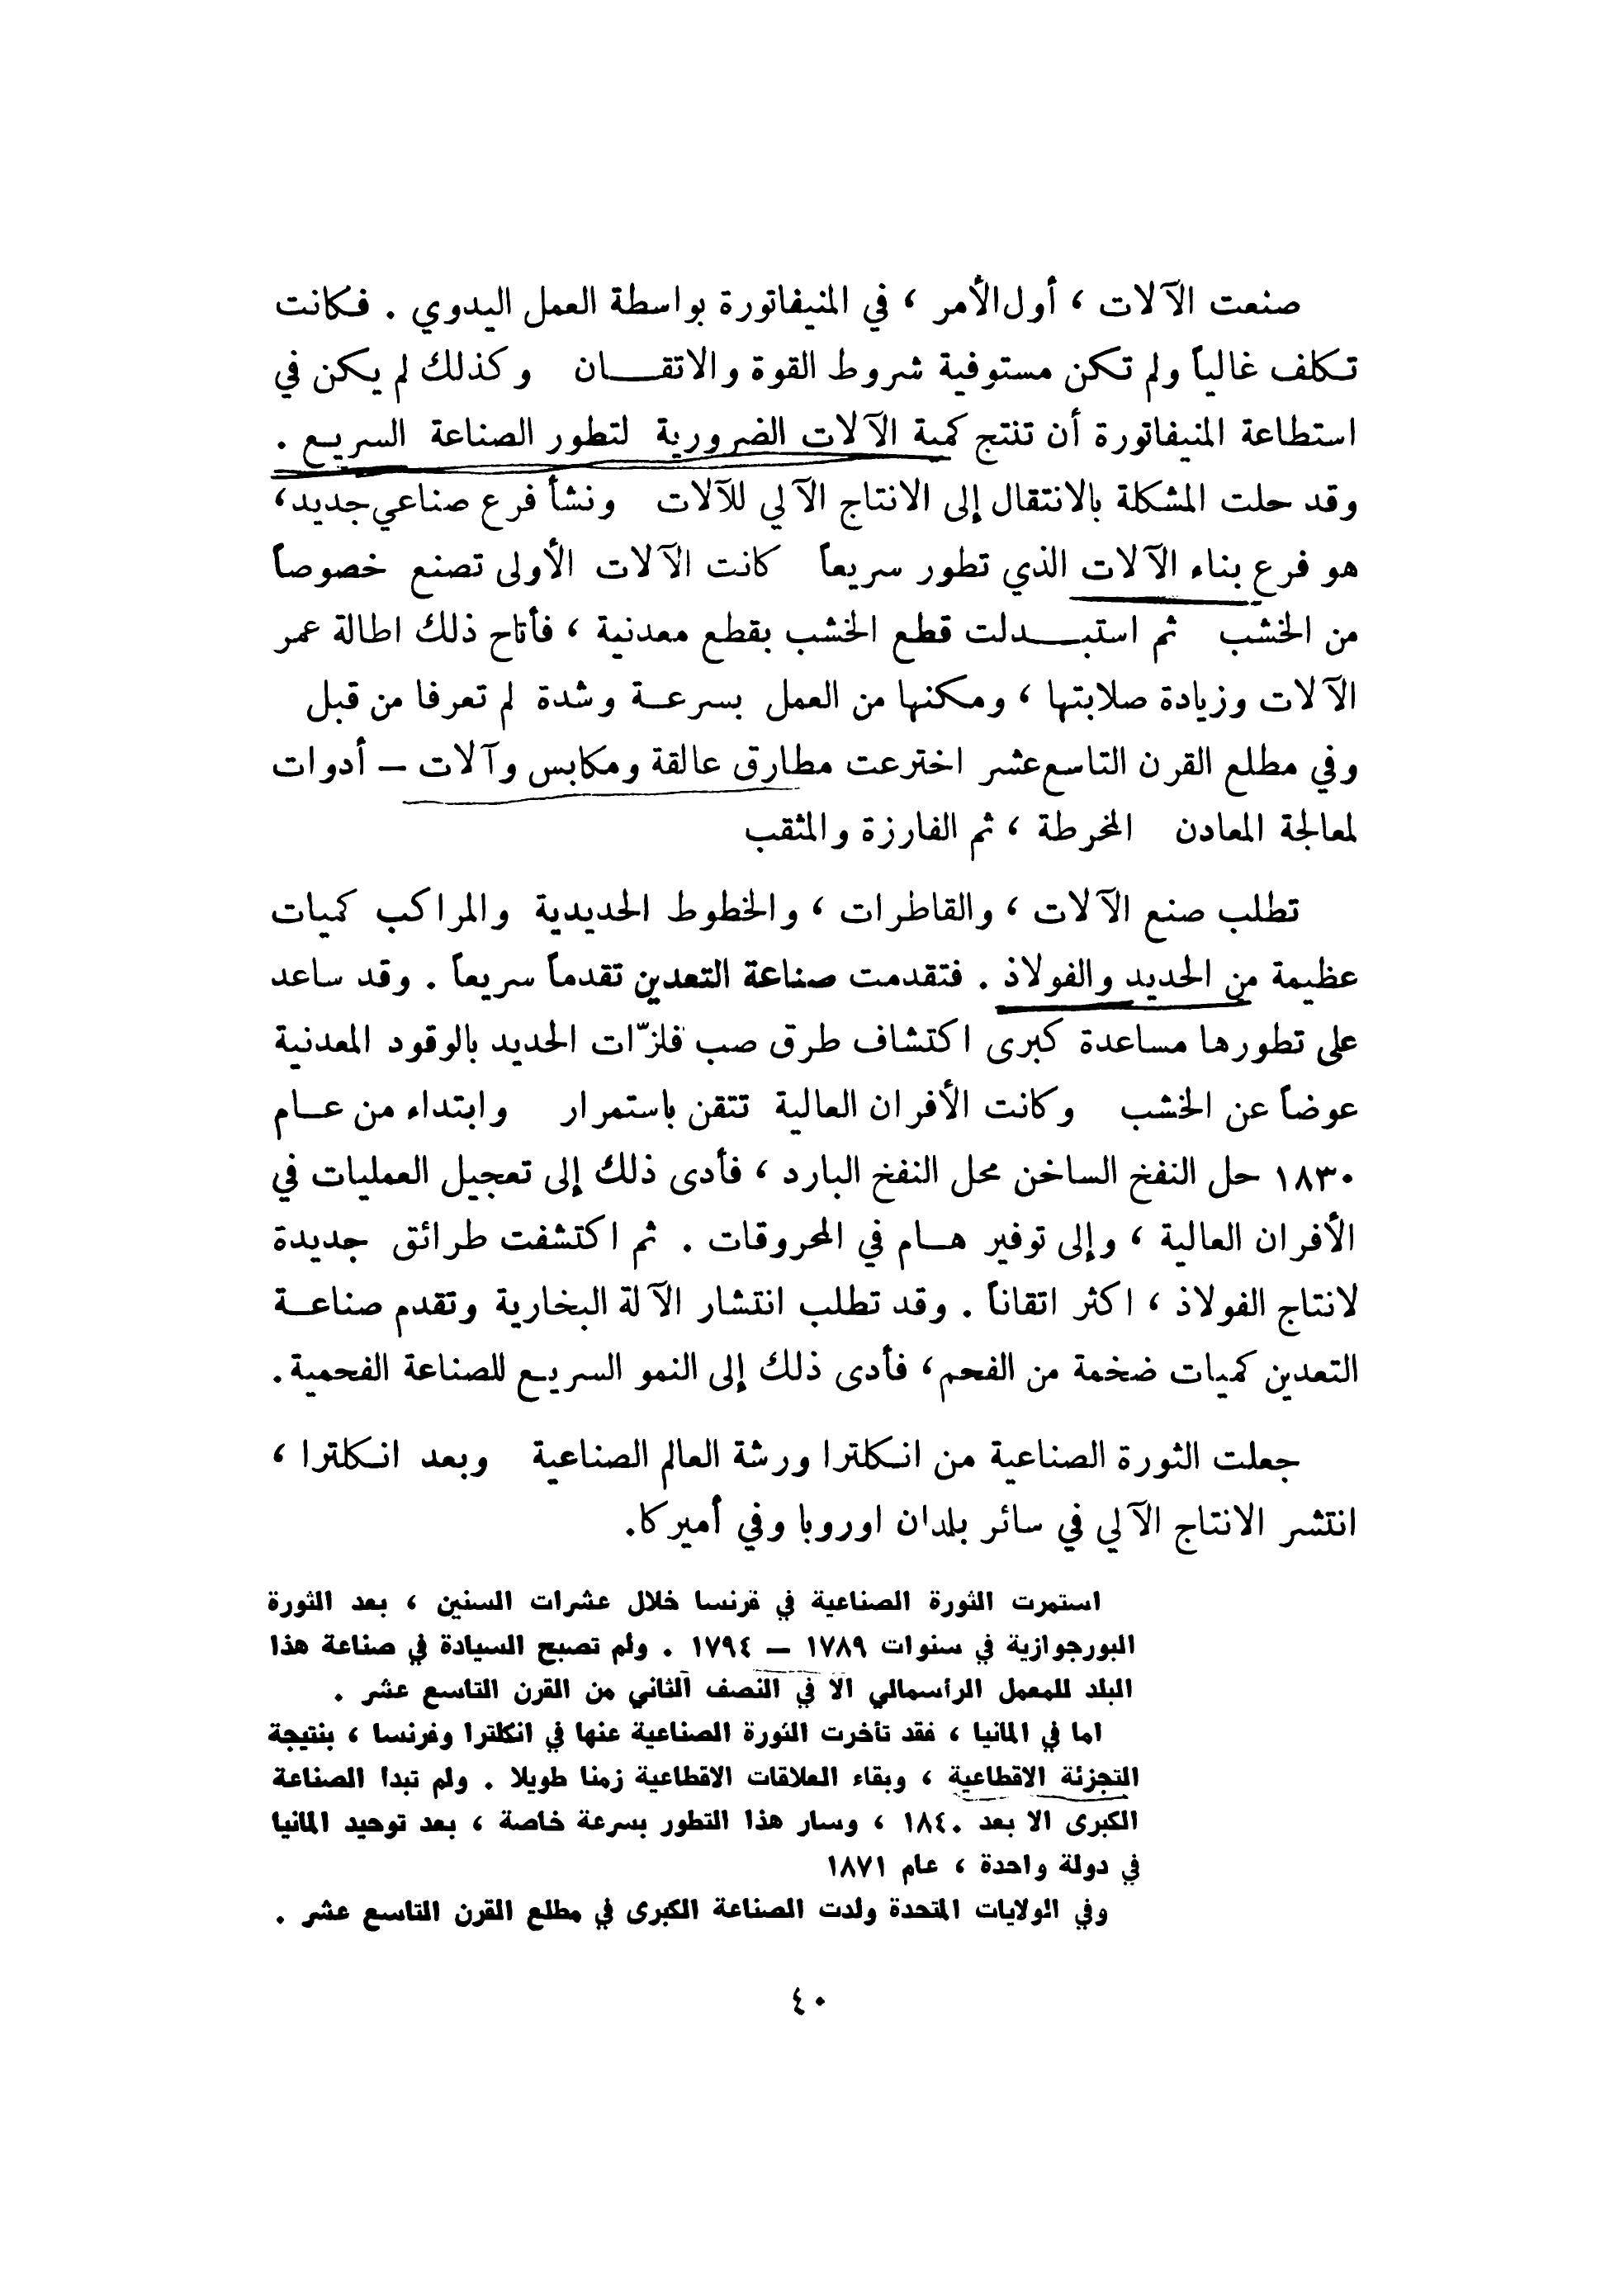 صنعت الآلات ، أول الأمر ، في المنيفاتورة بواسطة العمل اليدوي . فكانت
تكلف غالياً ولم تكن مستوفية شروط القوة والاتقان وكذلك لم يكن في
استطاعة المنيفاتورة أن تنتج كمية الآلات الضرورية لتطور الصناعة السريع .
وقد حلت المشكلة بالانتقال إلى الانتاج الآلي للآلات ونشأ فرع صناعي جديد ،
هو فرع بناء الآلات الذي تطور سريعاً كانت الآلات الأولى تصنع خصوصاً
من الخشب ثم استبدلت قطع الخشب بقطع معدنية ، فأتاح ذلك اطالة عمر
الآلات وزيادة صلابتها ، ومكنها من العمل بسرعة وشدة لم تعرفا من قبل
وفي مطلع القرن التاسع عشر اخترعت مطارق عالقة ومكابس وآلات – أدوات
لمعالجة المعادن المخرطة ، ثم الفارزة والمثقب
تطلب صنع الآلات ، والقاطرات ، والخطوط الحديدية والمراكب كميات
عظيمة من الحديد والفولاذ . فتقدمت صناعة التعدين تقدماً سريعاً . وقد ساعد
على تطورها مساعدة كبرى اكتشاف طرق صب فلزّات الحديد بالوقود المعدنية
عوضاً عن الخشب وكانت الأفران العالية تتقن باستمرار وابتداء من عام
١٨٣٠ حل النفخ الساخن محل النفخ البارد ، فأدى ذلك إلى تعجيل العمليات في
الأفران العالية ، وإلى توفير هام في المحروقات . ثم اكتشفت طرائق جديدة
لانتاج الفولاذ ، اكثر اتقاناً . وقد تطلب انتشار الآلة البخارية وتقدم صناعة
التعدين كميات ضخمة من الفحم ، فأدى ذلك إلى النمو السريع للصناعة الفحمية .
جعلت الثورة الصناعية من انكلترا ورشة العالم الصناعية وبعد انكلترا ،
انتشر الانتاج الآلي في سائر بلدان اوروبا وفي أميركا.
استمرت الثورة الصناعية في فرنسا خلال عشرات السنين ، بعد الثورة
البورجوازية في سنوات ١٧٨٩ – ١٧٩٤ . ولم تصبح السيادة في صناعة هذا
البلد للمعمل الرأسمالي الا في النصف الثاني من القرن التاسع عشر .
اما في المانيا ، فقد تأخرت الثورة الصناعية عنها في انكلترا وفرنسا ، بنتيجة
التجزئة الاقطاعية ، وبقاء العلاقات الاقطاعية زمنا طويلا . ولم تبدا الصناعة
الكبرى الا بعد ١٨٤٠ ، وسار هذا التطور بسرعة خاصة ، بعد توحيد المانيا
في دولة واحدة ، عام ١٨٧١
وفي الولايات المتحدة ولدت الصناعة الكبرى في مطلع القرن التاسع عشر .
٤٠